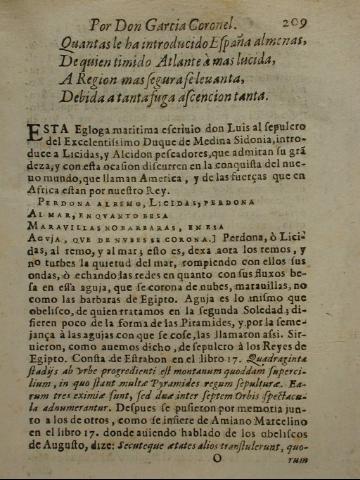 Por Don Garcia Coronel. 209
Quantas le ha introducido España almenas,
De quien timido Atlante à mas lucida,
A Region mas segura se leuanta,
Debida a tanta fuga ascencion tanta.
ESTA Egloga maritima escriuio don Luis al sepulcro
del Excelentissimo Duque de Medina Sidonia, intro-
duce a Licidas, y Alcidon pescadores, que admiran su grã
deza, y con esta ocasion discurren en la conquista del nue-
uo mundo, que llaman America, y de las fuerças que en
Africa estan por nuestro Rey.
PERDONA AL REMO, LICIDAS, PERDONA
AL MAR, EN QVANTO BESA
MARAVILLAS NO BARBARAS, EN ESA
AGVJA, QVE DE NVBES SE CORONA.] Perdona, ò Lici-
das, al remo, y al mar; esto es, dexa aora los remos, y
no turbes la quietud del mar, rompiendo con ellos sus
ondas, ò echando las redes en quanto con sus fluxos be-
sa en essa aguja, que se corona de nubes, marauillas, no
como las barbaras de Egipto. Aguja es lo mismo que
obelisco, de quien tratamos en la segunda Soledad; di-
fieren poco de la forma de las Piramides, y por la seme-
jança a las agujas con que se cose, las llamaron assi. Sir-
uieron, como auemos dicho, de sepulcro à los Reyes de
Egipto. Consta de Estrabon en el libro 17. Quadraginta
stadijs ab vrbe progredienti est montanum quoddam superci-
lium, in quo stant multæ Pyramides regum sepulturæ. Ea-
rum tres eximiæ sunt, sed duæ inter septem Orbis spectacu-
la adnumerantur. Despues se pusieron por memoria jun-
to a los de otros, como se infiere de Amiano Marcelino
en el libro 17. donde auiendo hablado de los obeliscos
de Augusto, dize: Secutæque ætates alios transtulerunt, quo-
O rum